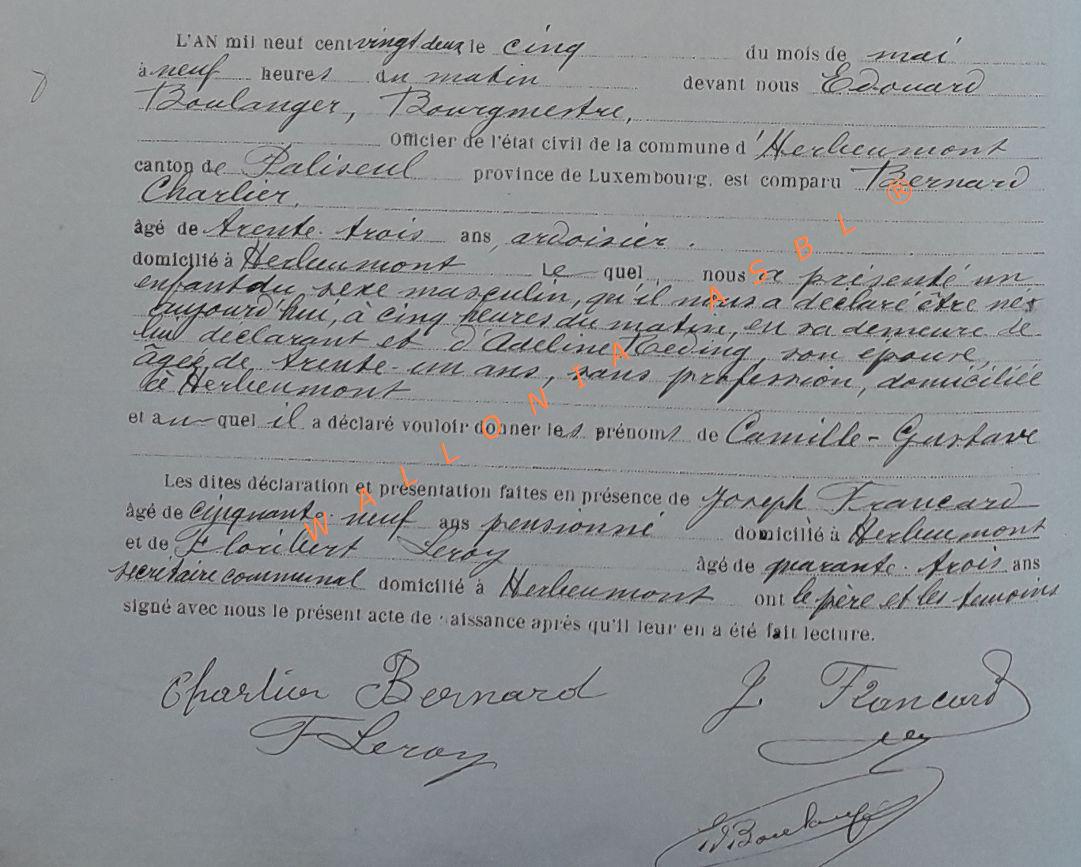 L'AN mil neuf cent vingt deux le cinq du mois de mai
à neuf heures du matin devant nous Edouard
Boulanger, Bourgmestre,
Officier de l'état civil de la commune d'Herbeumont
canton de Paliseul province de Luxembourg, est comparu Bernard
Charlier,
âgé de trente-trois ans, ardoisier.
domicilié à Herbeumont Le quel nous a présenté un
enfant du sexe masculin, qu'il nous a déclaré être né
aujourd'hui, à cinq heures du matin, en sa demeure de
lui déclarant et d'Adeline Reding, son épouse,
âgée de trente-un ans, sans profession, domiciliée
à Herbeumont
et au quel il a déclaré vouloir donner les prénoms de Camille-Gustave
Les dites déclaration et présentation faites en présence de Joseph Francard
âgé de cinquante-neuf ans pensionné domicilié à Herbeumont
et de Floribert Leroy âgé de quarante-trois ans
secrétaire communal domicilié à Herbeumont ont le père et les témoins
signé avec nous le présent acte de naissance après qu'il leur en a été fait lecture.
Charlier Bernard J. Francard
F Leroy
Ed Boulanger
WALLONIA ASBL ®